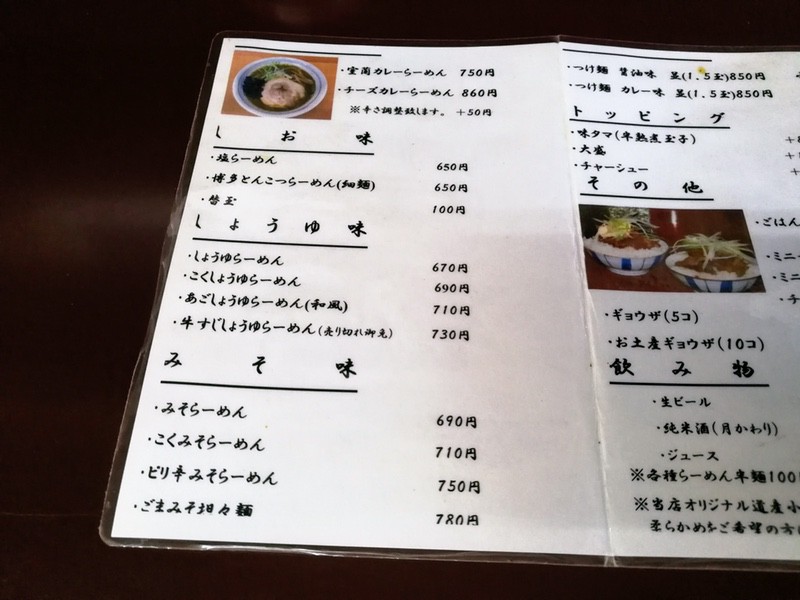 ・室蘭カレーらーめん 750円
・チーズカレーらーめん 860円
※辛さ調整致します。 +50円
しお味
・塩らーめん 650円
・博多とんこつらーめん(細麺) 650円
・替玉 100円
しょうゆ味
・しょうゆらーめん 670円
・こくしょうゆらーめん 690円
・あごしょうゆらーめん(和風) 710円
・牛すじしょうゆらーめん(売り切れ御免) 730円
みそ味
・みそらーめん 690円
・こくみそらーめん 710円
・ピリ辛みそらーめん 750円
・ごまみそ坦々麺 780円
・つけ麺 醤油味 並(1.5玉)850円
・つけ麺 カレー味 並(1.5玉)850円
トッピング
・味タマ(半熟煮玉子)
・大盛
・チャーシュー
その他
・ごはん
・ミニ
・ミニ
・チ
・ギョウザ(5コ)
・お土産ギョウザ(10コ)
飲み物
・生ビール
・純米酒(月かわり)
・ジュース
※各種らーめん半麺100
※当店オリジナル道産小
柔らかめをご希望の方は